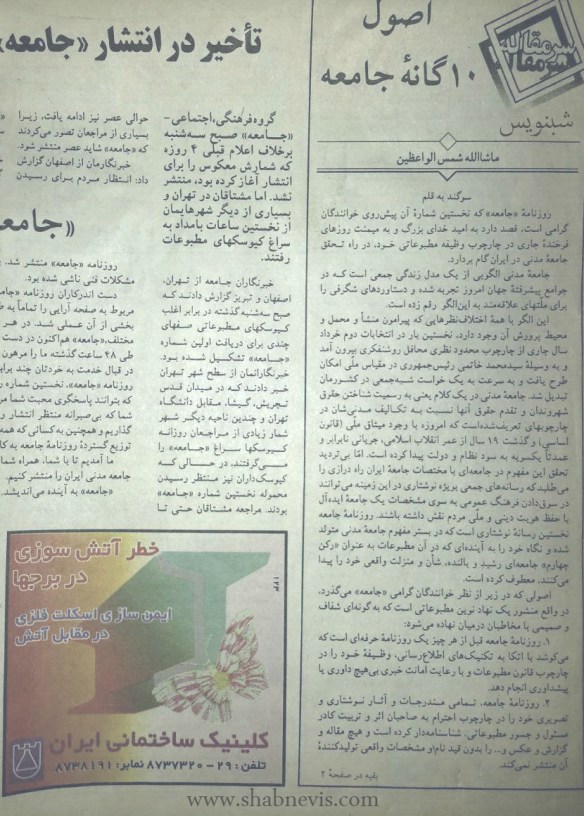 سرمقاله
اصول
۱۰ گانهٔ جامعه
شبنویس
ماشاالله شمس الواعظین
سوگند به قلم
روزنامهٔ «جامعه» که نخستین شمارهٔ آن پیش‌روی خوانندگان
گرامی است، قصد دارد به امید خدای بزرگ و به میمنت روزهای
فرخندهٔ جاری در چارچوب وظیفه مطبوعاتی خود، در راه تحقق
جامعهٔ مدنی در ایران گام بردارد.
جامعهٔ مدنی الگویی از یک مدل زندگی جمعی است که در
جوامع پیشرفتهٔ جهان امروز تجربه شده و دستاوردهای شگرفی را
برای ملتهای علاقه‌مند به این‌الگو رقم زده است.
این الگو با همهٔ اختلاف‌نظرهایی که پیرامون منشأ و محمل و
محیط پرورش آن وجود دارد، نخستین بار در انتخابات دوم خرداد
سال جاری از چارچوب محدود نظری محافل روشنفکری بیرون آمد
و به وسیلهٔ سیدمحمد خاتمی رئیس‌جمهوری در مقیاس ملی امکان
طرح یافت و به سرعت به یک خواست شبه‌جمعی در کشورمان
تبدیل شد. جامعهٔ مدنی در یک کلام یعنی به رسمیت شناختن حقوق
شهروندان و تقدم حقوق آنها نسبت به تکالیف مدنی‌شان در
چارچوبهای تعریف‌شده‌است که امروزه با وجود میثاق ملی (قانون
اساسی) و گذشت ۱۹ سال از عمر انقلاب اسلامی، جریانی نابرابر و
عمدتاً یکسویه به سود نظام و دولت پیدا کرده است. امّا بی‌تردید
تحقق این مفهوم در جامعه‌ای با مختصات جامعهٔ ایران راه درازی را
می‌طلبد که رسانه‌های جمعی بویژه نوشتاری در این زمینه می‌توانند
در سوق‌دادن فرهنگ عمومی به سوی مشخصات یک جامعهٔ ایده‌آل
با حفظ هویت دینی و ملّی مردم نقش داشته باشند. روزنامهٔ جامعه
نخستین رسانهٔ نوشتاری است که در بستر مفهوم جامعهٔ مدنی متولد
شده و نگاه خود را به آینده‌ای که در آن مطبوعات به عنوان «رکن
چهارم» جامعه‌ای رشید و بالنده، شأن و منزلت واقعی خود را پیدا
می‌کنند، معطوف کرده است.
اصولی که در زیر از نظر خوانندگان گرامی «جامعه» می‌گذرد،
در واقع منشور یک نهاد نوین مطبوعاتی است که به گونه‌ای شفاف
و صمیمی با مخاطبان درمیان نهاده می‌شود:
۱. روزنامهٔ جامعه قبل از هر چیز یک روزنامهٔ حرفه‌ای است که
می‌کوشد با اتکا به تکنیک‌های اطلاع‌رسانی، وظیفهٔ خود را در
چارچوب قانون مطبوعات و با رعایت امانت خبری بی‌هیچ داوری یا
پیشداوری انجام دهد.
۲. روزنامهٔ جامعه، تمامی مندرجات و آثار نوشتاری و
تصویری خود را در چارچوب احترام به صاحبان اثر و تربیت کادر
مسئول و جسور مطبوعاتی، شناسنامه‌دار کرده است و هیچ مقاله و
گزارش و عکس و... را بدون قید نام‌و مشخصات واقعی تولیدکنندهٔ
آن منتشر نمی‌کند.
بقیه در صفحهٔ ۲
تأخیر در انتشار «جامعه»
گروه‌فرهنگی،اجتماعی-
«جامعه» صبح سه‌شنبه
برخلاف اعلام قبلی ۴ روزه
که شمارش معکوس را برای
انتشار آغاز کرده بود، منتشر
نشد. اما مشتاقان در تهران و
بسیاری از دیگر شهرهایمان
از نخستین ساعات بامداد به
سراغ کیوسکهای مطبوعات
رفتند.
خبرنگاران جامعه از تهران،
اصفهان و تبریز گزارش دادند که
صبح سه‌شنبه گذشته در برابر اغلب
کیوسکهای مطبوعاتی صفهای
چندی برای دریافت اولین شماره
«جامعه» تشکیل شده بود.
خبرنگارانمان از سطح شهر تهران
خبر دادند که در میدان قدس
تجریش، گیشا، مقابل دانشگاه
تهران و چندین ناحیه دیگر شهر
شمار زیادی از مراجعان روزانه
کیوسکها سراغ «جامعه» را
می‌گرفتند، در حالی که
کیوسک‌داران نیز منتظر رسیدن
محموله نخستین شماره «جامعه»
بودند. مراجعه مشتاقان حتی تا
حوالی عصر نیز ادامه یافت، زیرا
بسیاری از مراجعان تصور می‌کردند
که «جامعه» شاید عصر منتشر شود.
خبرنگارمان از اصفهان گزارش
داد: انتظار مردم برای رسیدن
«جامعه
روزنامه «جامعه» منتشر شد.
مشکلات فنی ناشی شده بود.
دست اندرکاران روزنامه «جامعه
مربوط به صفحه آرایی را تماماً به
بخشی از آن عملی شد. در هر
مختلف،«جامعه» هم‌اکنون در دست
طی ۴۸ ساعت گذشته ما را مرهون
در قبال خدمت به خودتان چند برابر
روزنامه «جامعه»، نخستین شماره
که بتوانند پاسخگوی محبت شما مر
شما که بی‌صبرانه منتظر انتشار و
گذاریم و همچنین به کسانی که همه
توزیع گستردهٔ روزنامهٔ جامعه به کا
ما آمدیم تا با شما، همراه شما
جامعه مدنی ایران را منتشر کنیم.
«جامعه» به آینده می‌اندیشد.
خطر آتش سوزی
در برجها
ایمن سازی اسکلت فلزی
در مقابل آتش
۱۲۳
کلینیک ساختمانی ایران
تلفن: ۲۹ - ۸۷۳۷۳۲۰ نمابر: ۸۷۳۸۱۹۱
www.shabnevis.com